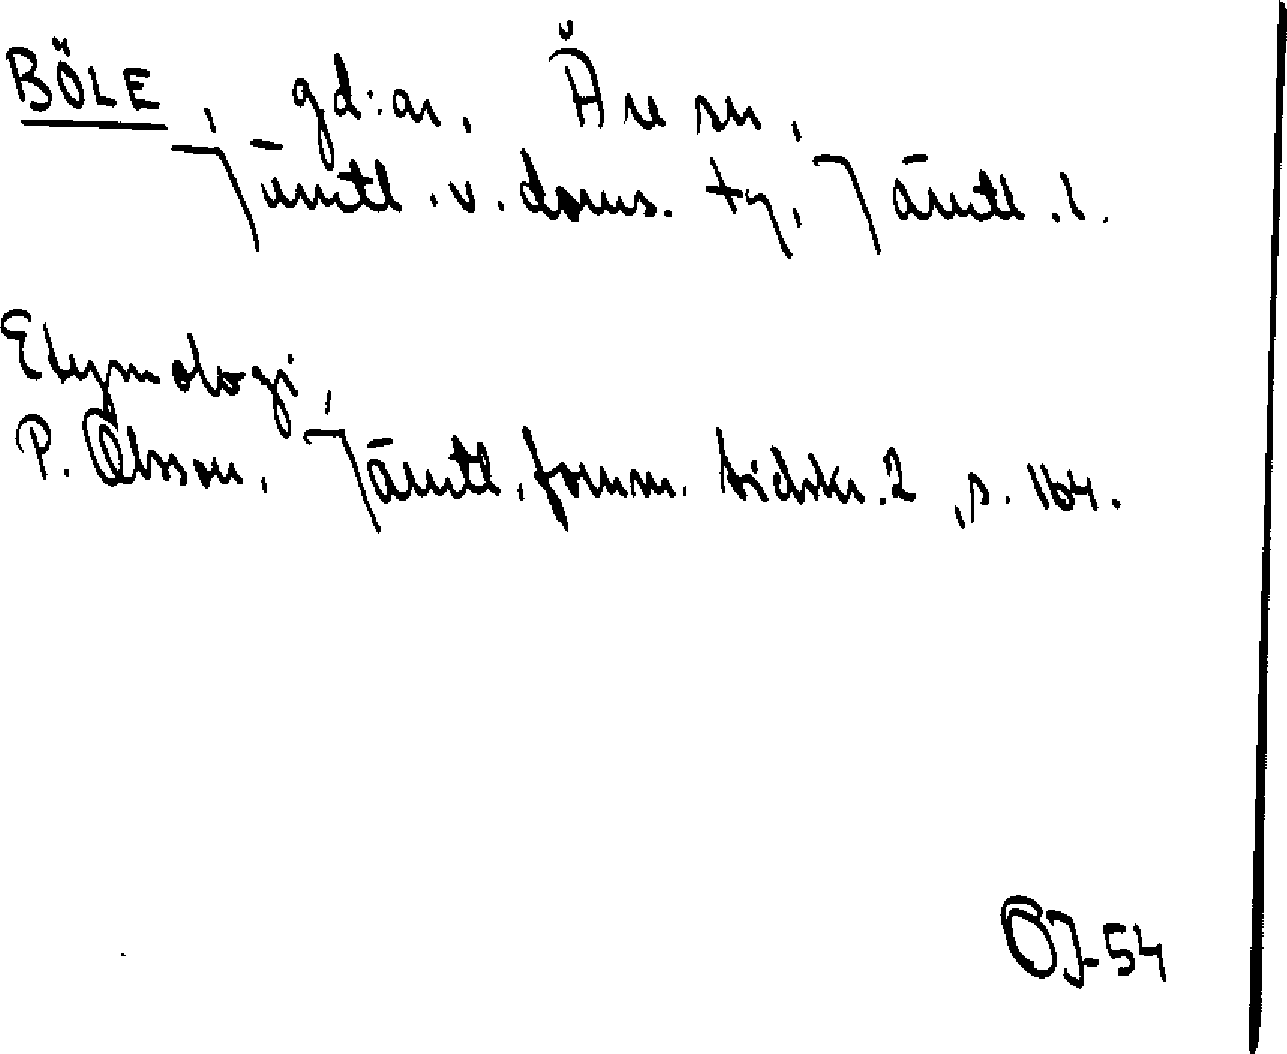 BÖLE, gd:ar. Åre sn,
Jämtl. v. doms. ty, Jämtl. l.
Etymologi,
P. Olsson, Jämtl. fornm. tidskr. 2, s. 164.
OJ-54